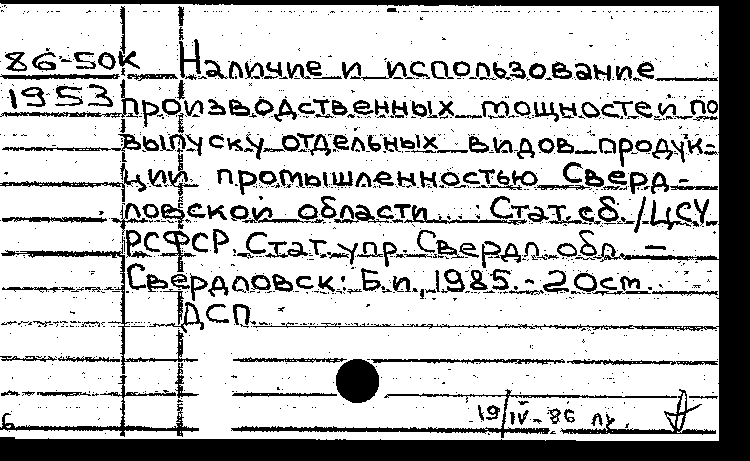 86-50к Наличие и использование
1953 производственных мощностей по
выпуску отдельных видов продук-
ции промышленностью Сверд-
ловской области...: Стат. сб. / ЦСУ
РСФСР. Стат. упр. Свердл. обл. –
Свердловск: Б.и., 1985. - 20 ст.
ДСП
19/IV-86
6